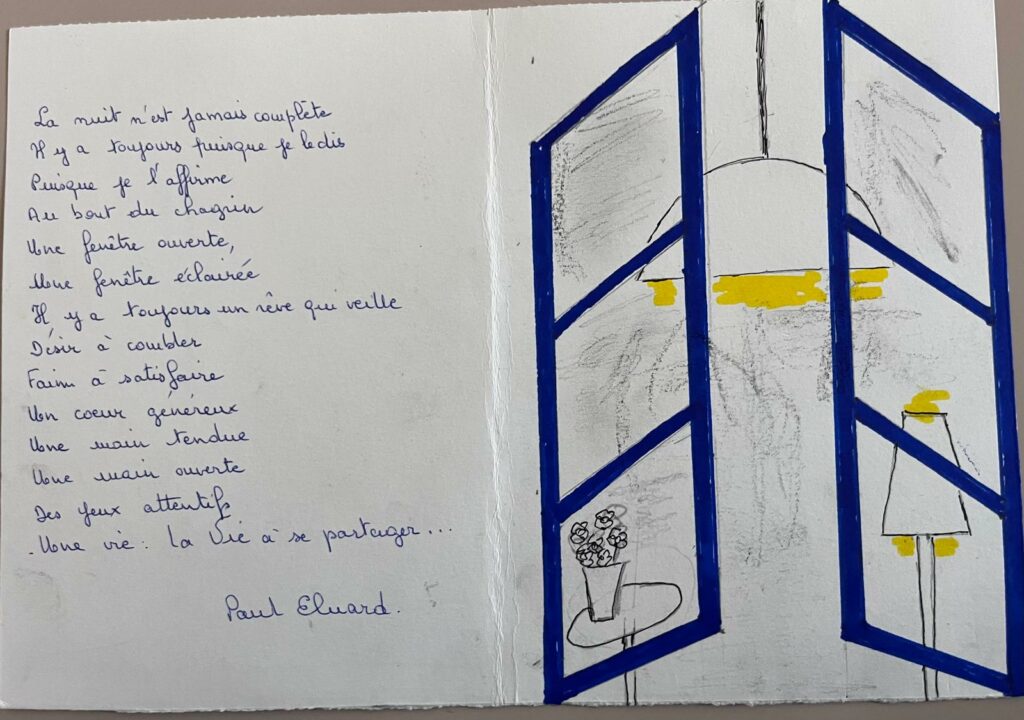 La nuit n'est jamais complète
Il y a toujours puisque je le dis
Puisque je l'affirme
Au bout du chagrin
Une fenêtre ouverte,
Une fenêtre éclairée
Il y a toujours un rêve qui veille
Désir à combler
Faim à satisfaire
Un coeur généreux
Une main tendue
Une main ouverte
Des yeux attentifs
Une vie : La Vie à se partager...
Paul Eluard.